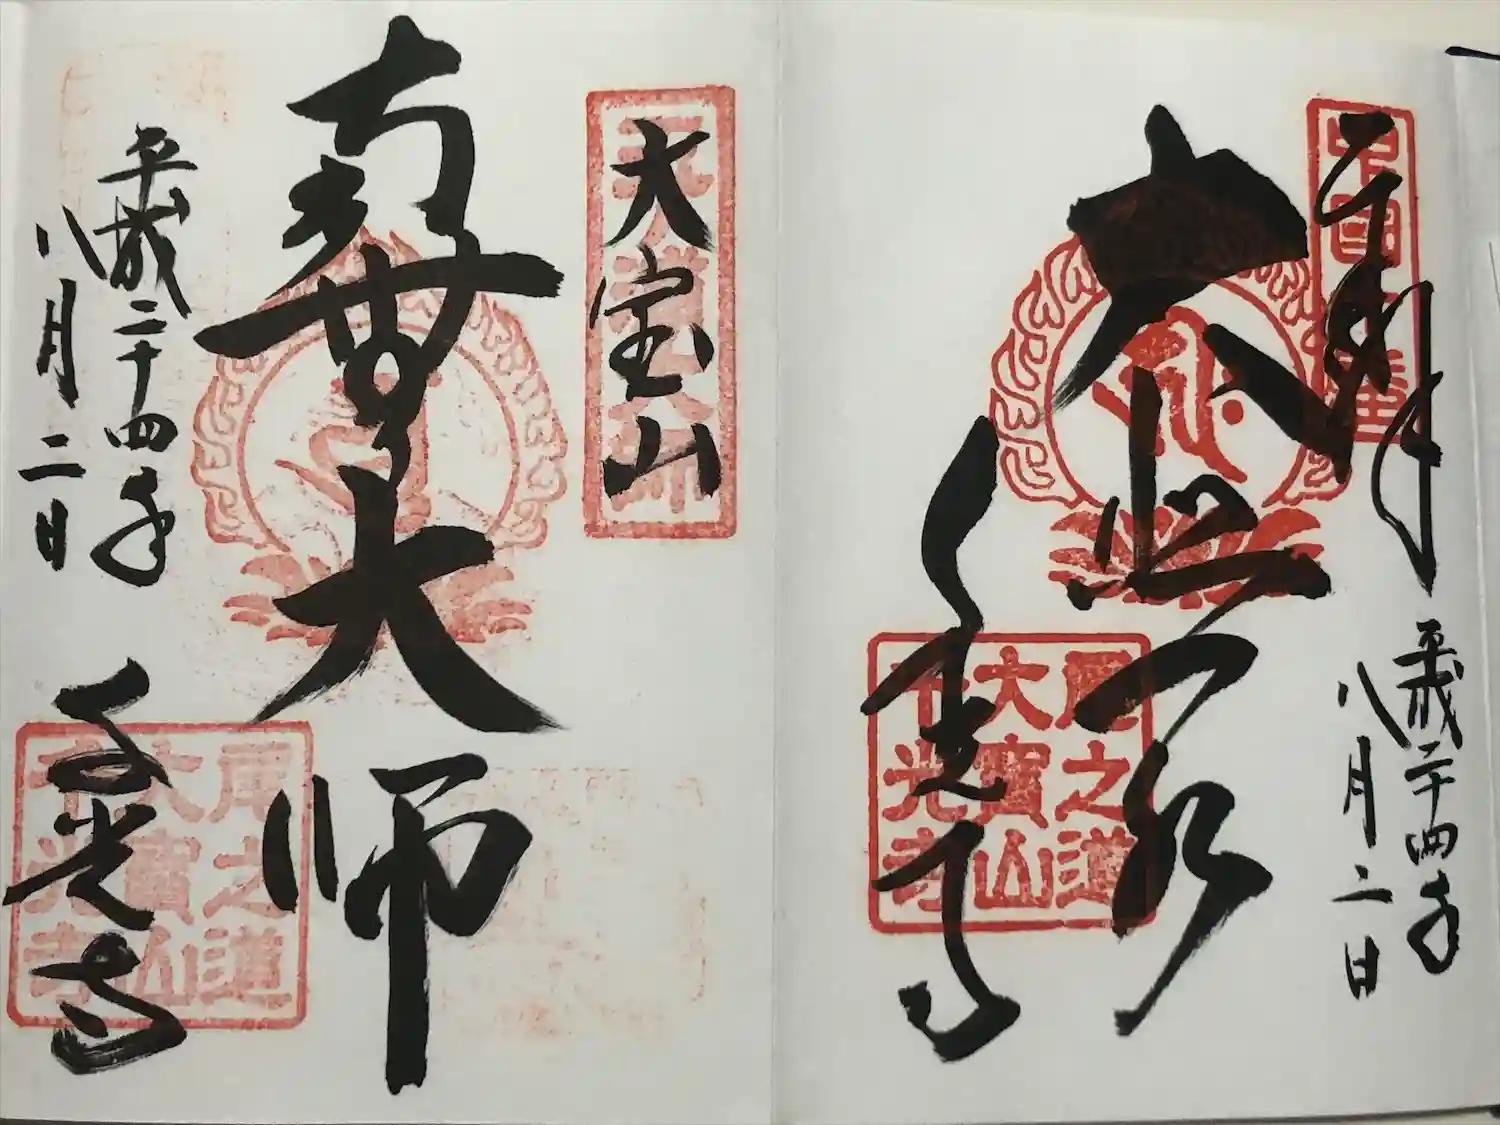 奉拝
平成二十四年
八月二日
大悲
千光寺
尾之道
大寶山
千光寺
大宝山
南無大師
平成二十四年
八月二日
千光寺
尾之道
大寶山
千光寺